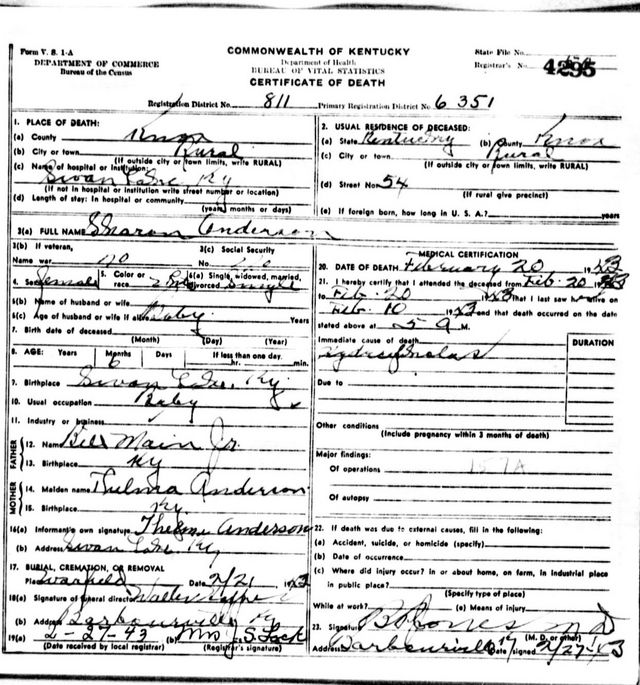 Form V. S. 1-A
COMMONWEALTH OF KENTUCKY
State File No.
DEPARTMENT OF COMMERCE
Bureau of the Census
Department of Health
BUREAU OF VITAL STATISTICS
CERTIFICATE OF DEATH
Registrar's No. 4295
Registration District No. 811 Primary Registration District No. 6351
1. PLACE OF DEATH:
(a) County Knox
(b) City or town Rural
(If outside city or town limits, write RURAL)
(c) Name of hospital or institution:
Swan Lake Ky
(If not in hospital or institution write street number or location)
(d) Length of stay: In hospital or community
(years, months or days)
2. USUAL RESIDENCE OF DECEASED:
(a) State Kentucky (b) County Knox
(c) City or town Rural
(If outside city or town limits, write RURAL)
(d) Street No. 54
(If rural give precinct)
(e) If foreign born, how long in U. S. A.? years
3(a) FULL NAME Sharon Anderson
3(b) If veteran,
Name war no
3(c) Social Security
No.
4. Sex Female 5. Color or race 6(a) Single, widowed, married, divorced Single
6(b) Name of husband or wife
6(c) Age of husband or wife if alive Baby Years
7. Birth date of deceased
(Month) (Day) (Year)
8. AGE: Years Months Days If less than one day
6 hr. min.
9. Birthplace Swan Lake, Ky
10. Usual occupation Baby
11. Industry or business
FATHER
12. Name Bill Main Jr.
13. Birthplace Ky
MOTHER
14. Maiden name Thelma Anderson
15. Birthplace Ky.
16(a) Informant's own signature Thelma Anderson
(b) Address Swan Lake Ky
17. BURIAL, CREMATION, OR REMOVAL
Place Date 2/21 1943
18(a) Signature of funeral director Walter
(b) Address Barbourville Ky
19(a) 2-27-43 (b) Mrs
(Date received by local registrar) (Registrar's signature)
MEDICAL CERTIFICATION
20. DATE OF DEATH February 20 1943
21. I hereby certify that I attended the deceased from Feb. 20 1943
to Feb. 20 1943 that I last saw h alive on
Feb. 10 1943 and that death occurred on the date
stated above at 5 a M.
Immediate cause of death
DURATION
Due to
Other conditions
(Include pregnancy within 3 months of death)
Major findings:
Of operations 157A
Of autopsy
22. If death was due to external causes, fill in the following:
(a) Accident, suicide, or homicide (specify)
(b) Date of occurrence
(c) Where did injury occur? in or about home, on farm, in industrial place
in public place?
(Specify type of place)
While at work? (e) Means of injury
23. Signature M D
(M. D. or other)
Address Barbourville Ky Date signed 2/27-43